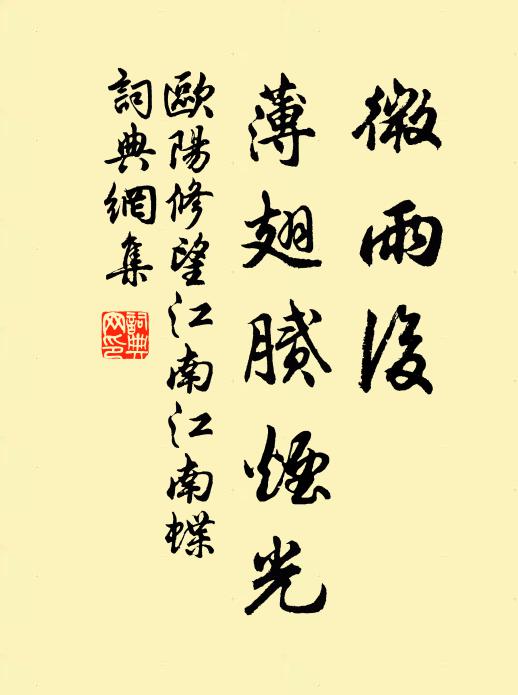 微雨後
薄翅膩煙光
歐陽修望江南江南蝶
詞典網集
詞典
网印